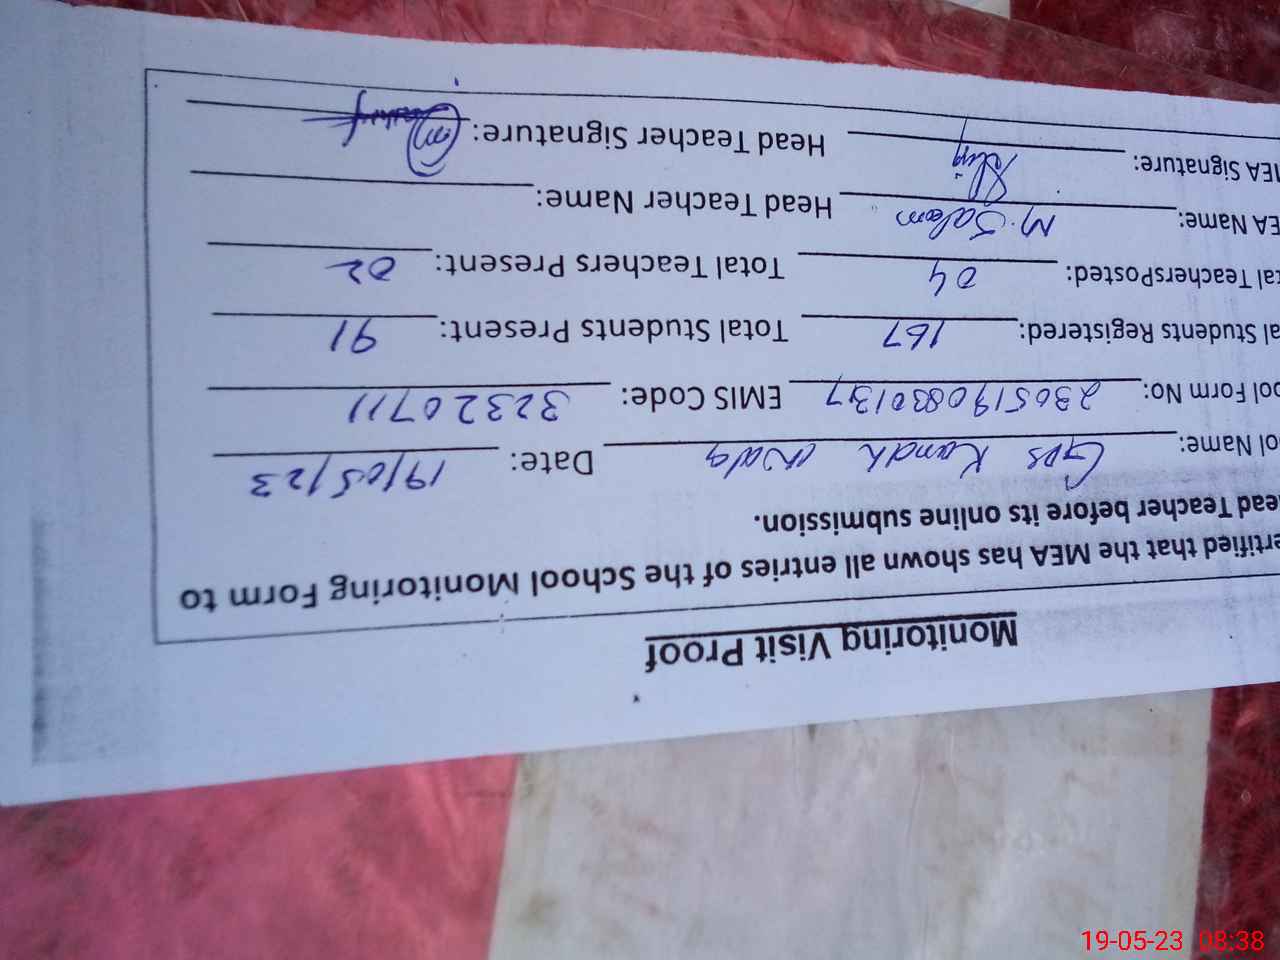 Monitoring Visit Proof
ertified that the MEA has shown all entries of the School Monitoring Form to
ead Teacher before its online submission.
ool Name: GPS Kandh Date: 19/05/23
ool Form No: 230519083013 EMIS Code: 32320711
al Students Registered: 167 Total Students Present: 91
tal TeachersPosted: 04 Total Teachers Present: 02
EA Name: M. Salam Head Teacher Name:
MEA Signature: Head Teacher Signature:
19-05-23 08:38